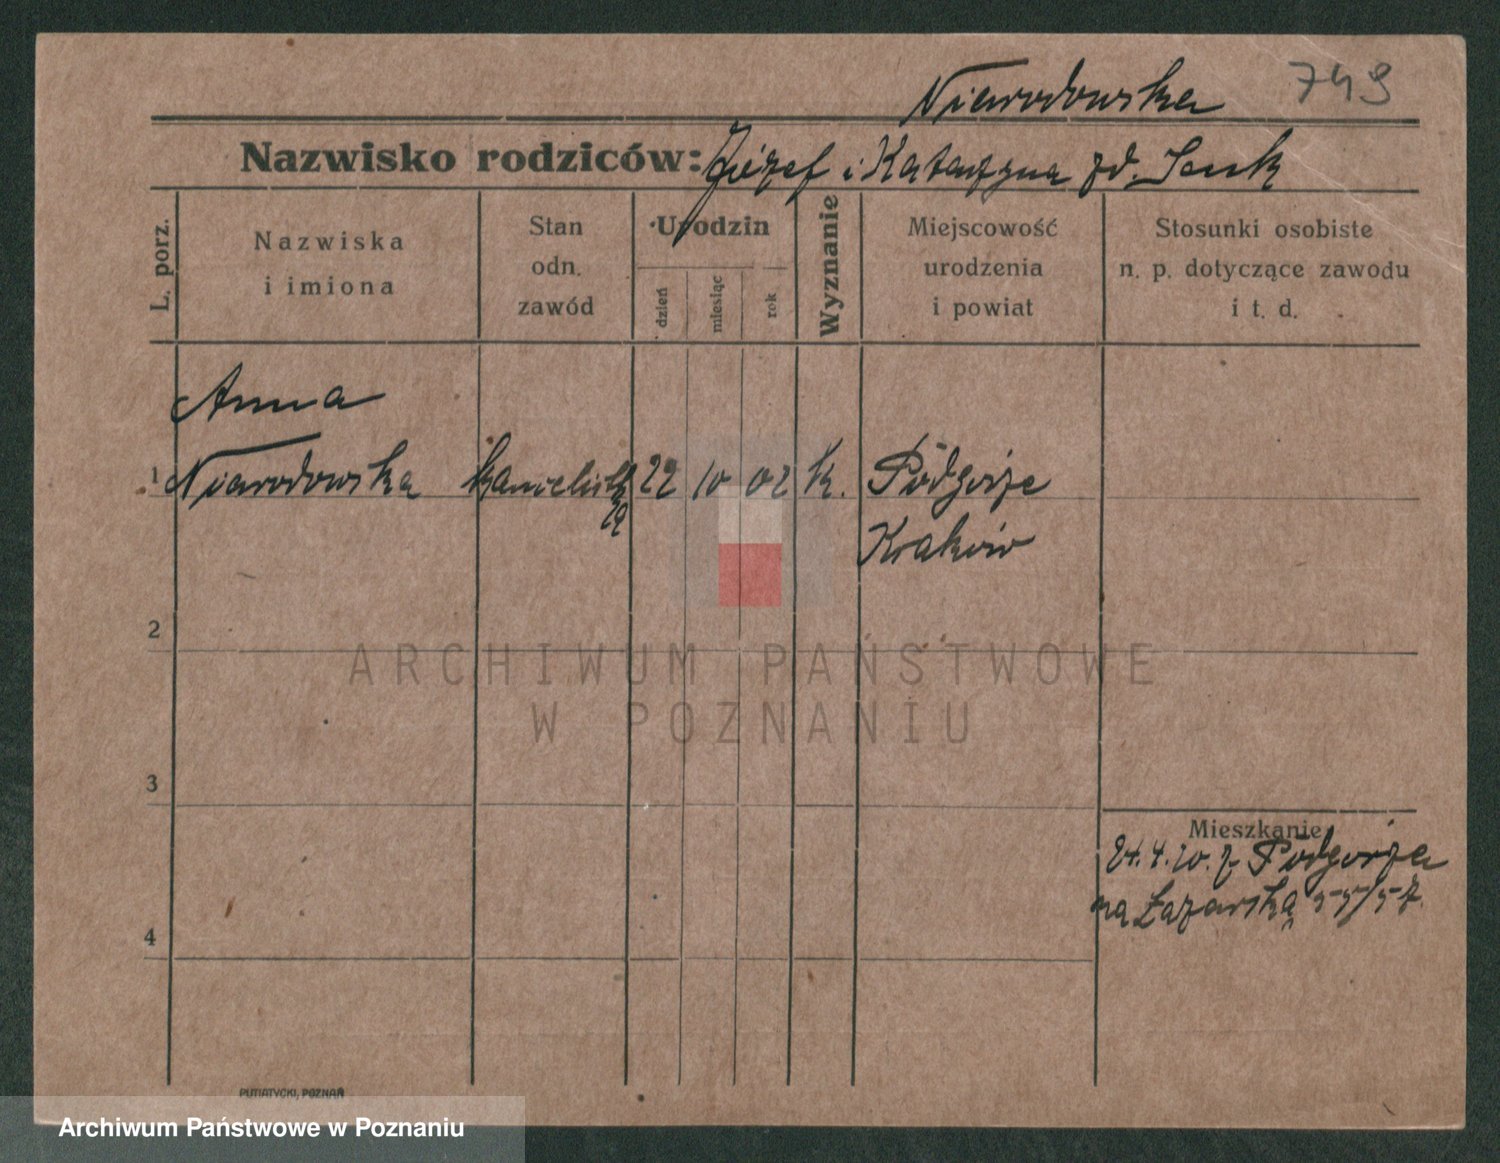 Niewodowska 749
Nazwisko rodziców: Józef i Katarzyna zd.
L. porz.
Nazwiska
i imiona
Stan
odn.
zawód
Urodzin
dzień
miesiąc
rok
Wyznanie
Miejscowość
urodzenia
i powiat
Stosunki osobiste
n. p. dotyczące zawodu
i t. d.
Anna
1 Niewodowska 22 10 02 k. Podgórze
Kraków
2
ARCHIWUM PAŃSTWOWE
W POZNANIU
3
Mieszkanie
24.4.20. z Podgórza
na Łazarską 55/57.
4
PUTIATYCKI, POZNAŃ
Archiwum Państwowe w Poznaniu